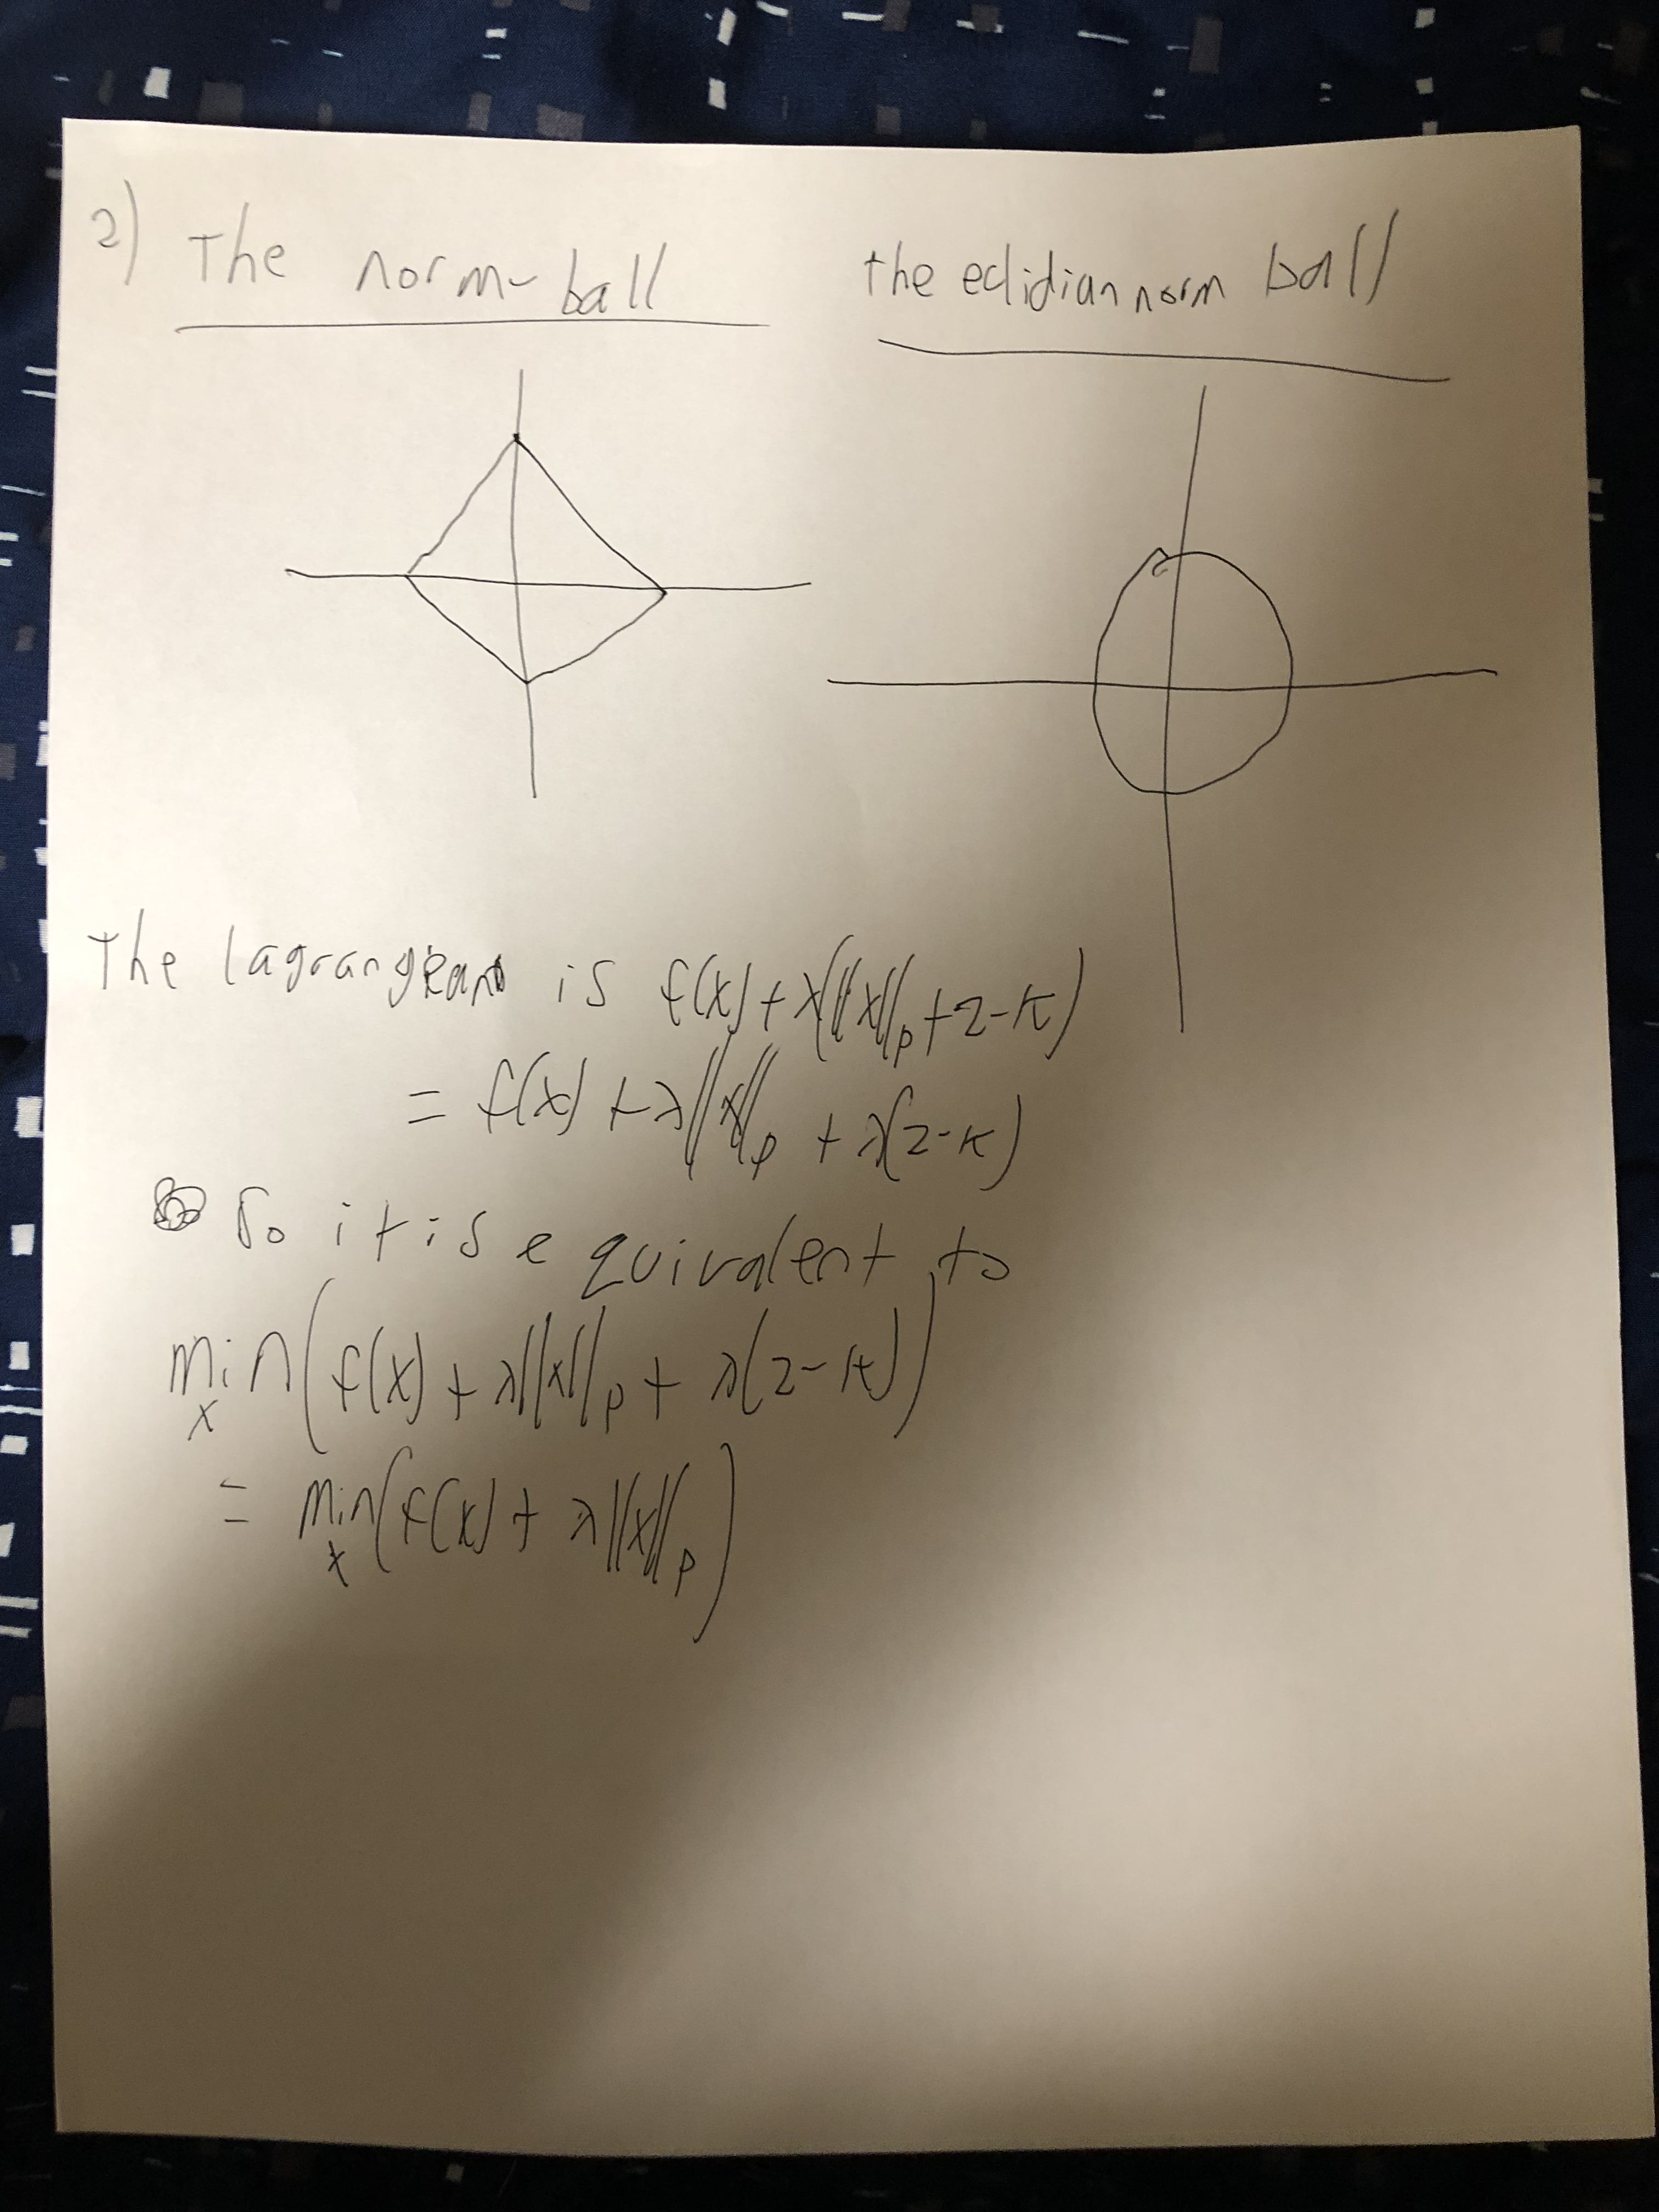 2) The norm-ball
the eclidian norm ball
The lagrangean is f(x) + λ(||x||_p + 2-k)
= f(x) + λ||x||_p + λ(2-k)
So it is equivalent to
min_x (f(x) + λ||x||_p + λ(2-k))
= min_x (f(x) + λ||x||_p)